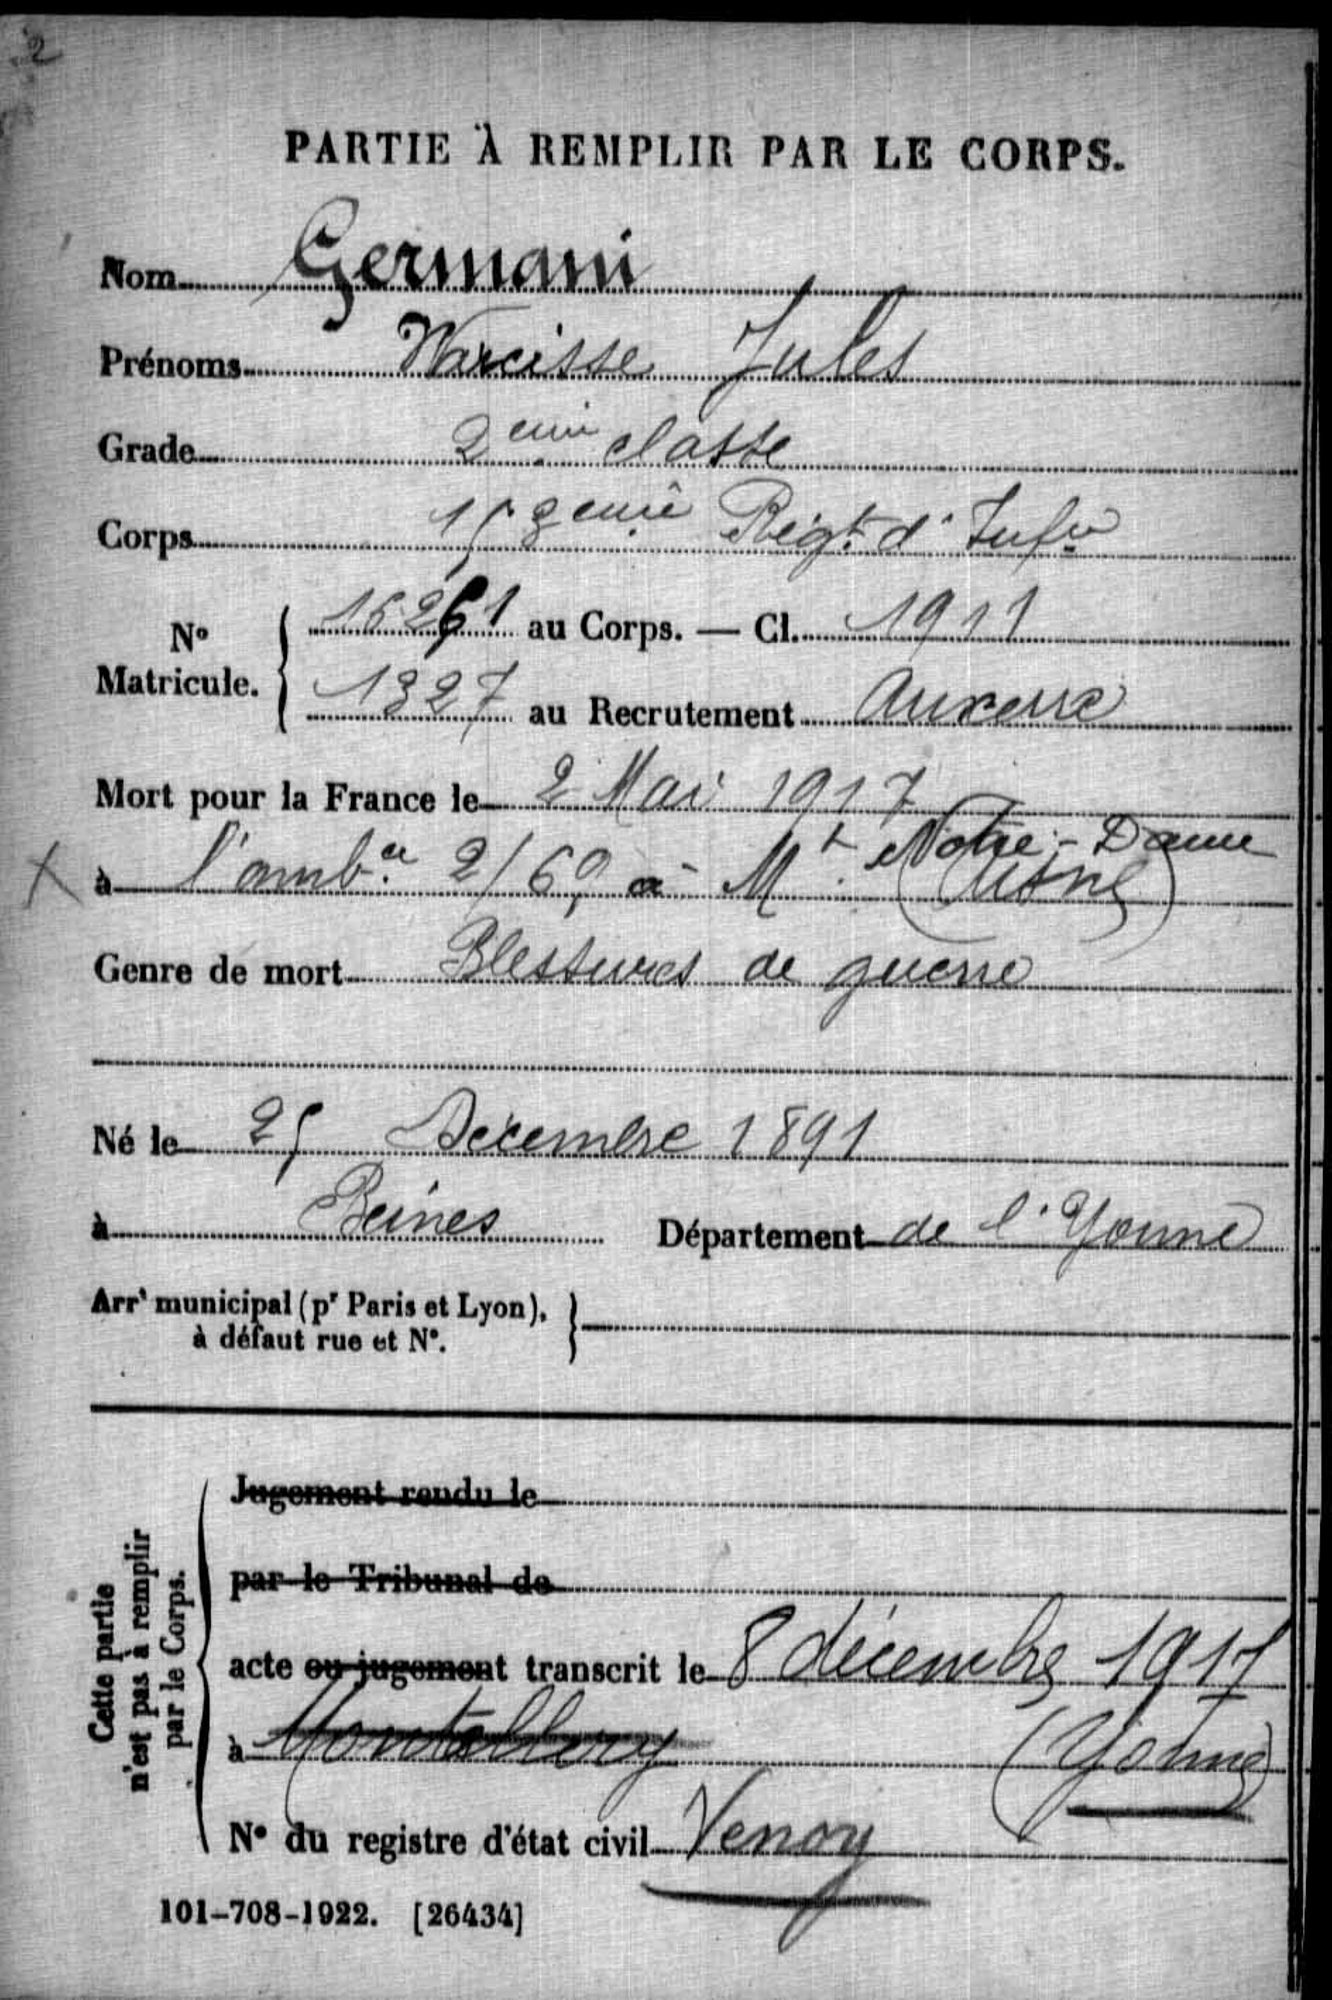 2
PARTIE À REMPLIR PAR LE CORPS.
Nom Germani
Prénoms Narcisse Jules
Grade 2eme classe
Corps 158eme Régt. d'Infie
No Matricule. 16261 au Corps. — Cl. 1911
1327 au Recrutement Auxerre
Mort pour la France le 2 Mai 1917
à l'ambce 2/69 à Mt Notre-Dame
(Aisne)
Genre de mort Blessures de guerre
Né le 25 Décembre 1891
à Beines Département de l'Yonne
Arrt municipal (pr Paris et Lyon),
à défaut rue et No.
Cette partie
n'est pas à remplir
par le Corps.
Jugement rendu le
par le Tribunal de
acte ou jugement transcrit le 8 décembre 1917
à (Yonne)
No du registre d'état civil Venoy
101-708-1922. [26434]